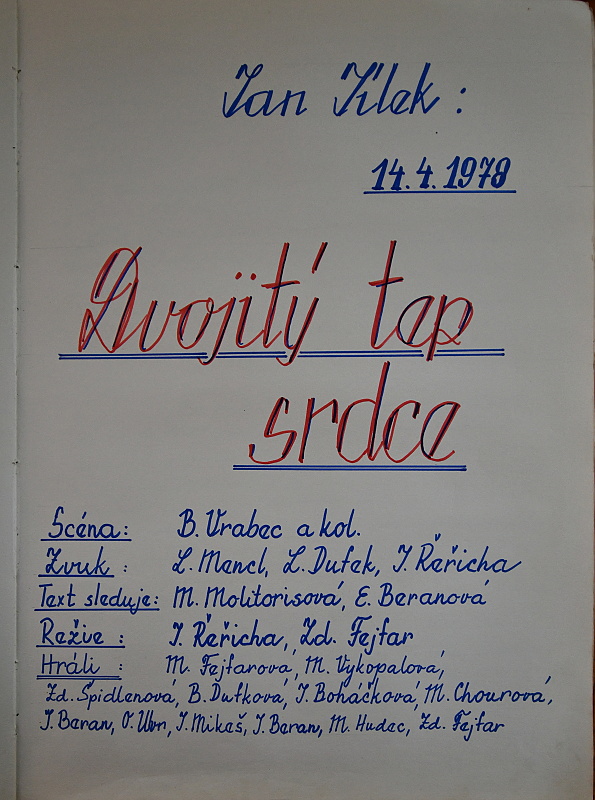 Jan Jílek:
14.4.1978
Dvojitý tep
srdce
Scéna: B. Vrabec a kol.
Zvuk: L. Mencl, L. Dufek, J. Řeřicha
Text sleduje: M. Molitorisová, E. Beranová
Režie: J. Řeřicha, Zd. Fejfar
Hráli: M. Fejfarová, M. Vykopalová,
Zd. Špidlenová, B. Dufková, J. Boháčková, M. Chourová,
J. Beran, O. J. Mikeš, J. Beran, M. Hudec, Zd. Fejfar